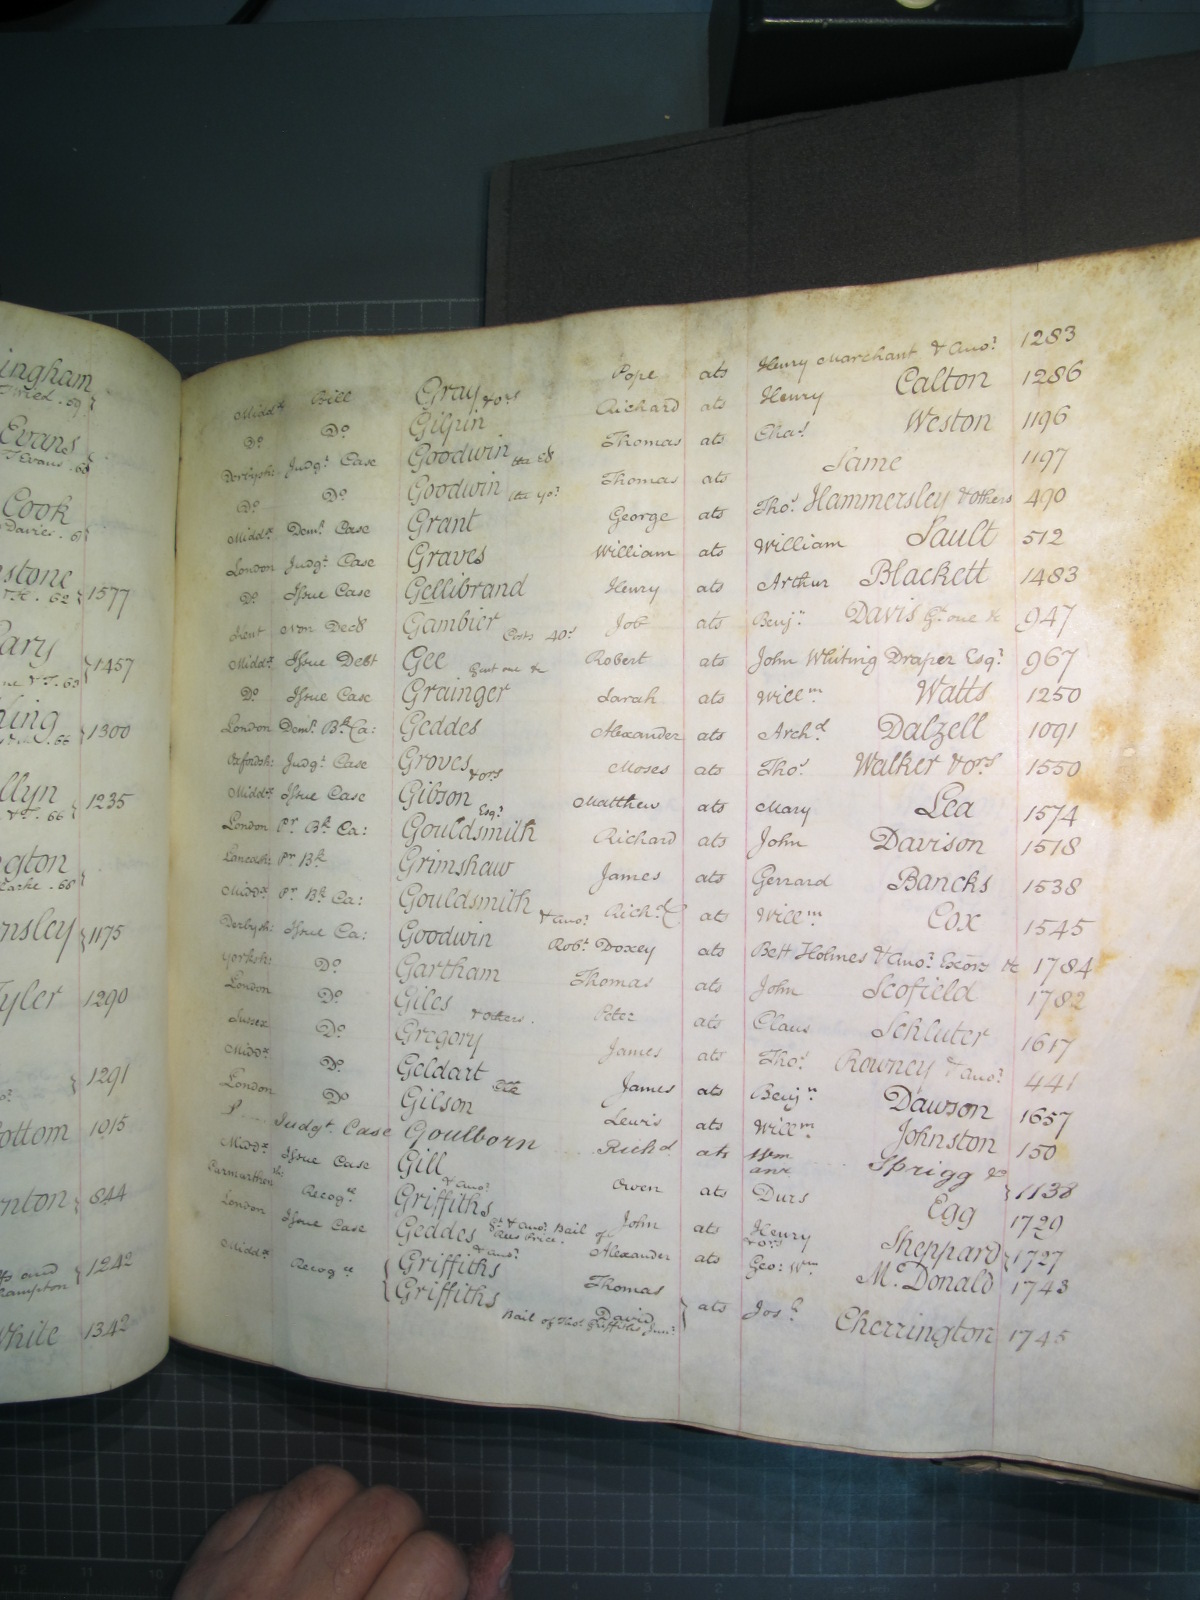 ingham
Evans
T Evans . 63
Cook
Davies . 6
stone
1577
ary
1457
ning
1300
llyn
1235
gton
Clarke . 68
nsley 1175
Tyler 1290
1291
ottom 1015
nton 844
1242
hampton
White 1342
Midd.x Bill Gray & ors Pope ats Henry Marchant & ano.r 1283
D.o D.o Gilpin Richard ats Henry Calton 1286
Derbysh: Judg.t Case Goodwin the Eld Thomas ats Cha.s Weston 1196
D.o D.o Goodwin the yo.r Thomas ats Same 1197
Midd.x Dem.r Case Grant George ats Tho.s Hammersley & others 490
London Judg.t Case Graves William ats William Sault 512
D.o Issue Case Gellibrand Henry ats Arthur Blackett 1483
Kent Non Decd Gambier Costs 40.s Job ats Benj.n Davis G.t one &c 947
Midd.x Issue Debt Gee Gent one &c Robert ats John Whiting Draper Esq.r 967
D.o Issue Case Grainger Sarah ats Will.m Watts 1250
London Dem.r B.k Ca: Geddes Alexander ats Arch.d Dalzell 1091
Oxfordsh: Judg.t Case Groves & ors Moses ats Tho.s Walker & ors 1550
Midd.x Issue Case Gibson Esq.r Matthew ats Mary Lea 1574
London Pr. B.k Ca: Gouldsmith Richard ats John Davison 1518
Lancash: Pr B.k Grimshaw James ats Gerrard Bancks 1538
Midd.x Pr. B.k Ca: Gouldsmith & ano.r Rich.d ats Will.m Cox 1545
Derbysh: Issue Ca: Goodwin Rob.t Doxey ats Bett Holmes & ano.r Exors &c 1784
Yorksh: D.o Gartham Thomas ats John Scofield 1782
London D.o Giles & others . Peter ats Claus Schluter 1617
Sussex D.o Gregory James ats Tho.s Rowney & ano.r 441
Midd.x D.o Geldart James ats Benj.n Dawson 1657
London D.o Gilson Lewis ats Will.m Johnston 150
Judg.t Case Goulborn Rich.d ats Wm Sprigg &c 1138
Midd.x Issue Case Gill & ano.r Owen ats Durs Egg 1729
Carmarthen Recog.ce Griffiths John ats Henry & ors Sheppard 1727
London Issue Case Geddes Alexander ats Geo: W.m Mc.Donald 1743
Midd.x Recog.ce Griffiths & ano.r Thomas
Griffiths David ats Jos.h Cherrington 1745
Bail of Tho.s Griffiths Jun.r